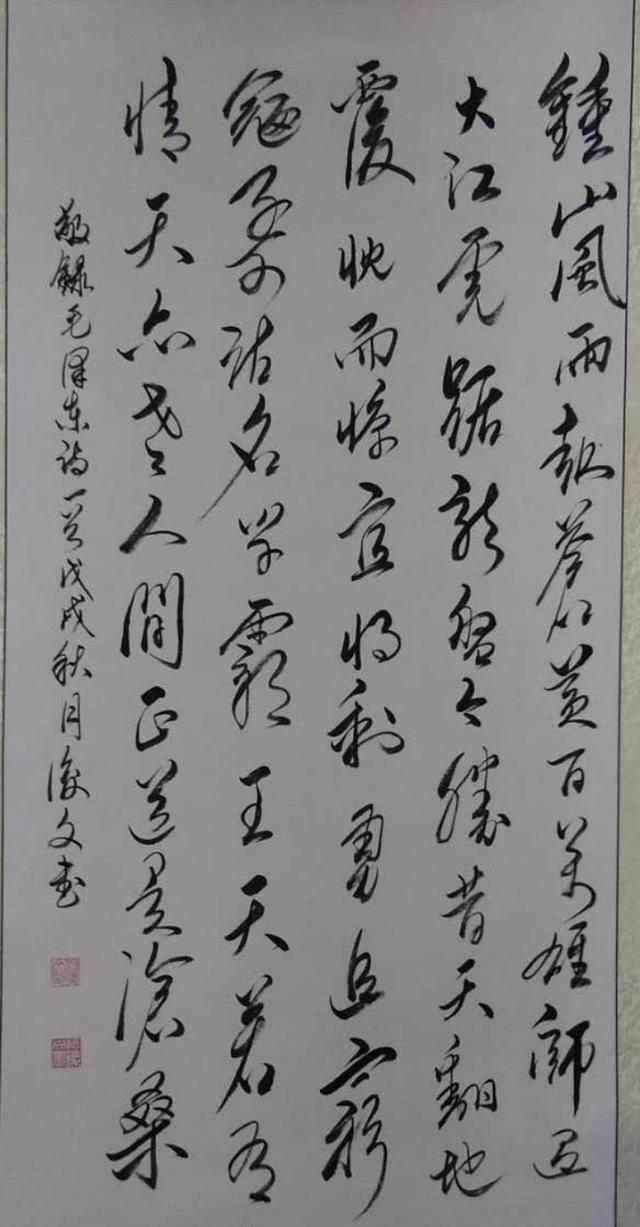 鍾山風雨起蒼黃百萬雄師過
大江虎踞龍盤今勝昔天翻地
覆慨而慷宜將剩勇追窮
寇不可沽名學霸王天若有
情天亦老人間正道是滄桑
敬錄毛澤東詩一首戊戌秋月俊文書